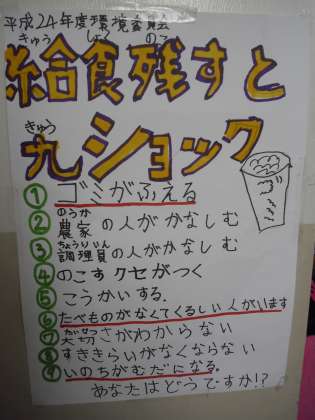 平成24年度環境委員会
きゅう しょく のこ
給食残すと
きゅう
九ショック
① ゴミがふえる
のうか
② 農家の人がかなしむ
ちょうりいん
③ 調理員の人がかなしむ
④ のこすクセがつく
⑤ こうかいする.
⑥ たべものがなくてくるしい人がいます
⑦ 大切さがわからない
⑧ すききらいがなくならない
⑨ いのちがむだになる.
あなたはどうですか!?